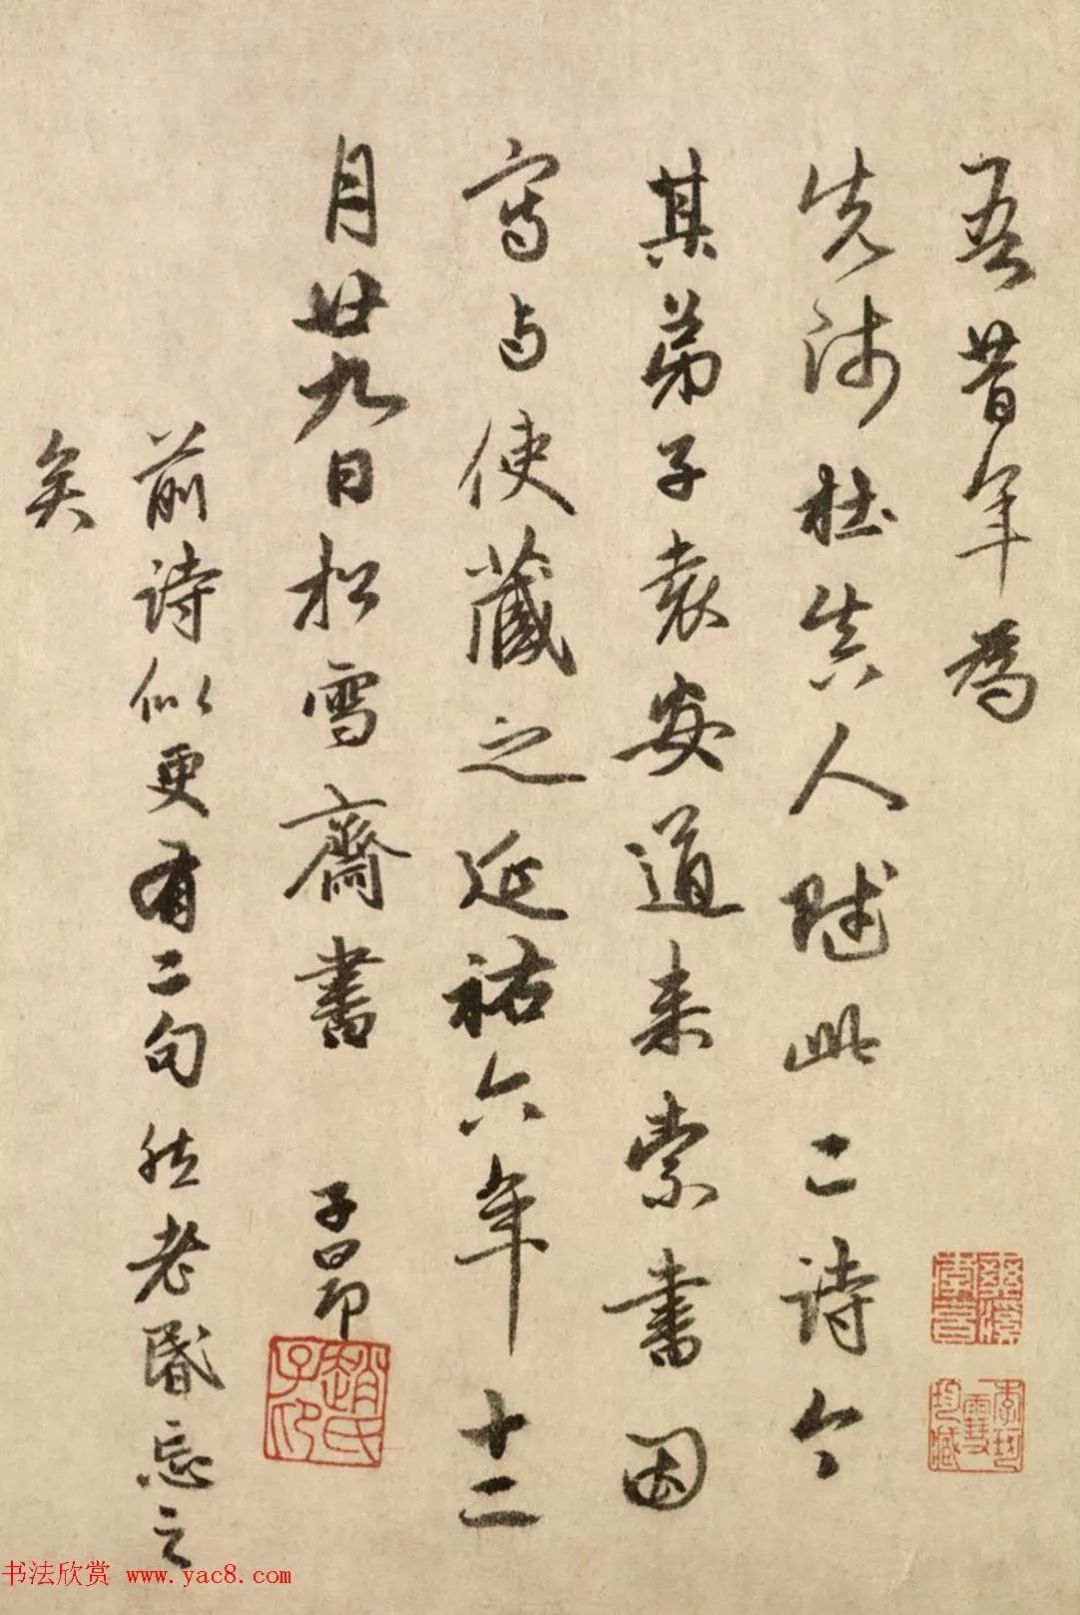 吾昔年為
先師杜真人賦此二詩今
其弟子袁安道来索書因
寫与使藏之延祐六年十二
月廿九日松雪齋書 子昂
趙氏子昂
前詩似更有二句然老昏忘之
矣
书法欣赏 www.yac8.com